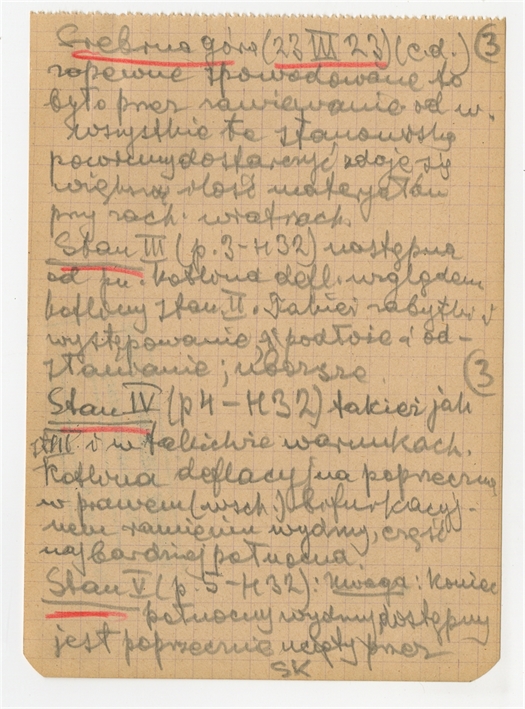 Srebrna góra (23 III 23) (c.d.) 3
zapewne spowodowane to
było przez zawiewanie od w.
Wszystkie te stanowiska
powinny dostarczyć, zdaje się
większą ilość materjałów
przy zach. wiatrach.
Stan III (p. 3 - H32) następna
od pn. kotlina defl. względem
kotliny stan II. Takież zabytki i
występowanie, podłoże i od-
słanianie; uboższe. 3
Stan IV (p4 - H32) takież jak
i w takichże warunkach.
Kotlina deflacyjna poprzeczna
w prawem (wsch.) bifurkacyj-
nem ramieniu wydmy, część
najbardziej północna.
Stan V (p. 5 - H32). Uwaga: koniec
północny wydmy dostępny
jest poprzecznie ucięty przez
SK